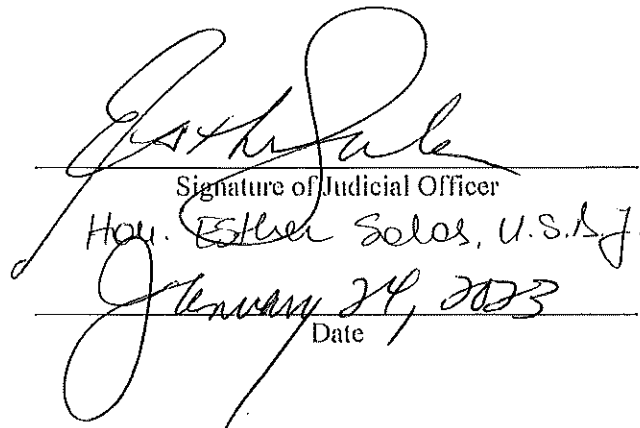 Esther Salas
Signature of Judicial Officer
Hon. Esther Salas, U.S.D.J.
January 24, 2023
Date